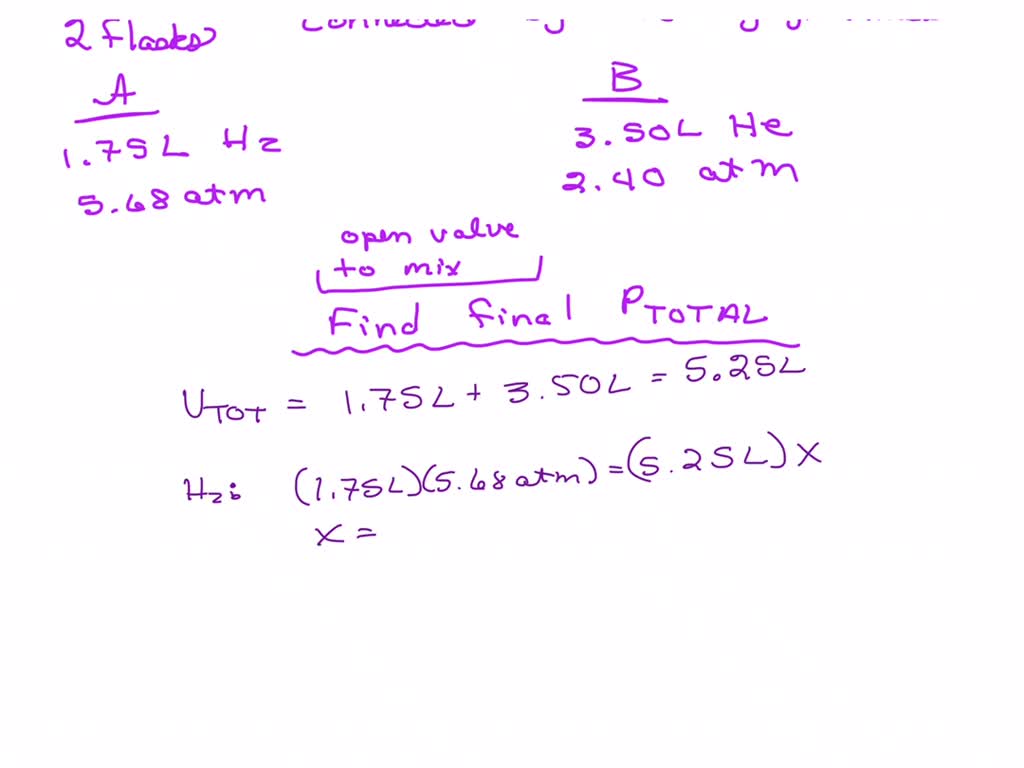 2 Flasks
A
B
1.75L H2
3.50L He
5.68 atm
2.40 atm
open valve
to mix
Find final PTOTAL
VTOT = 1.75L + 3.50L = 5.25L
H2: (1.75L)(5.68 atm) = (5.25L) X
X =